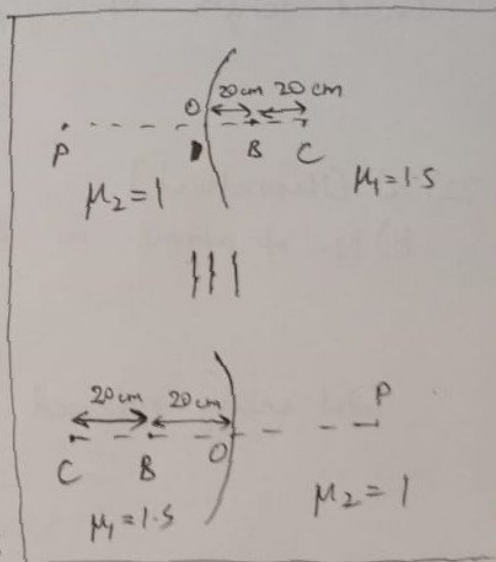 20cm 20 cm
O
P B C
μ₂ = 1 μ₁ = 1.5
20cm 20cm
P
C B O
μ₁ = 1.5 μ₂ = 1